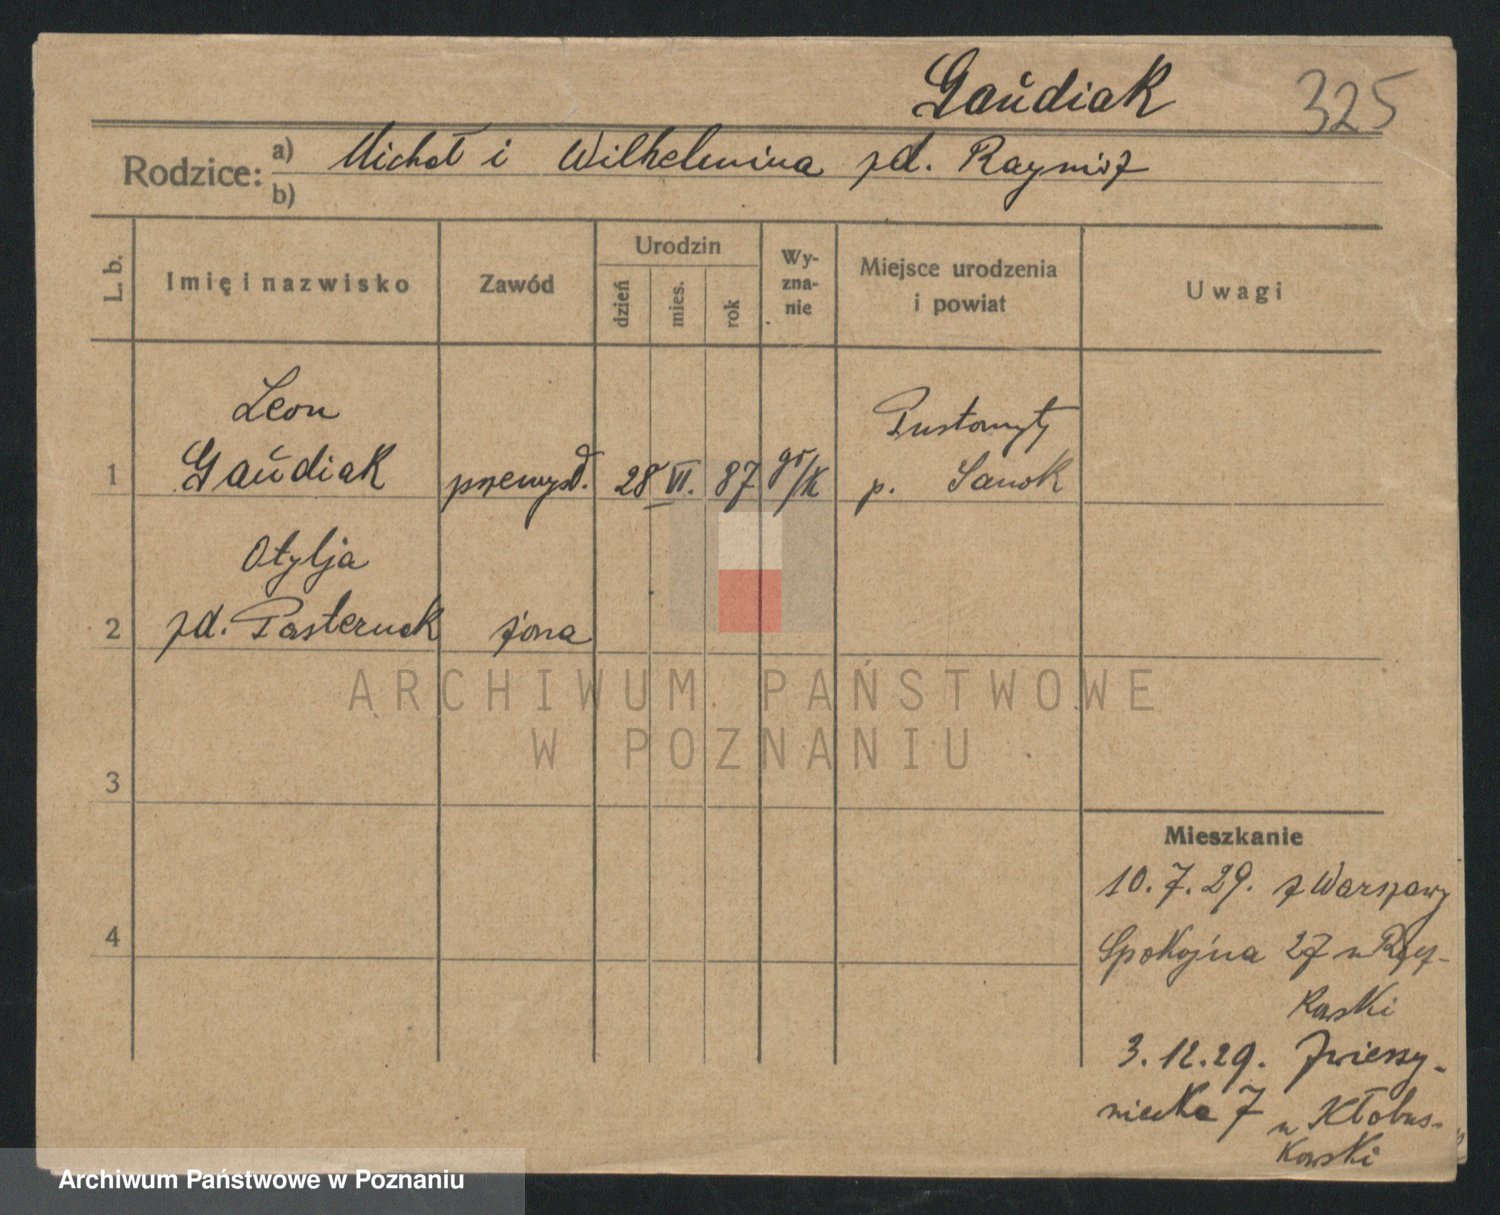 Gaŭdiak
325
Rodzice:
a) Michał i Wilhelmina zd.
b)
L. b.
Imię i nazwisko
Zawód
Urodzin
dzień
mies.
rok
Wy-
zna-
nie
Miejsce urodzenia
i powiat
Uwagi
Leon
1 Gaŭdiak przemysł. 28 VI. 87 gr/k
Pustomyty
p. Sanok
Otylja
2 zd. Pasternak żona
3
4
Mieszkanie
10.7.29. z Warszawy
Spokojna 27 u
kowski
3.12.29. Zwierzy-
niecka 7
u Kłobus-
kowski
ARCHIWUM PAŃSTWOWE
W POZNANIU
Archiwum Państwowe w Poznaniu